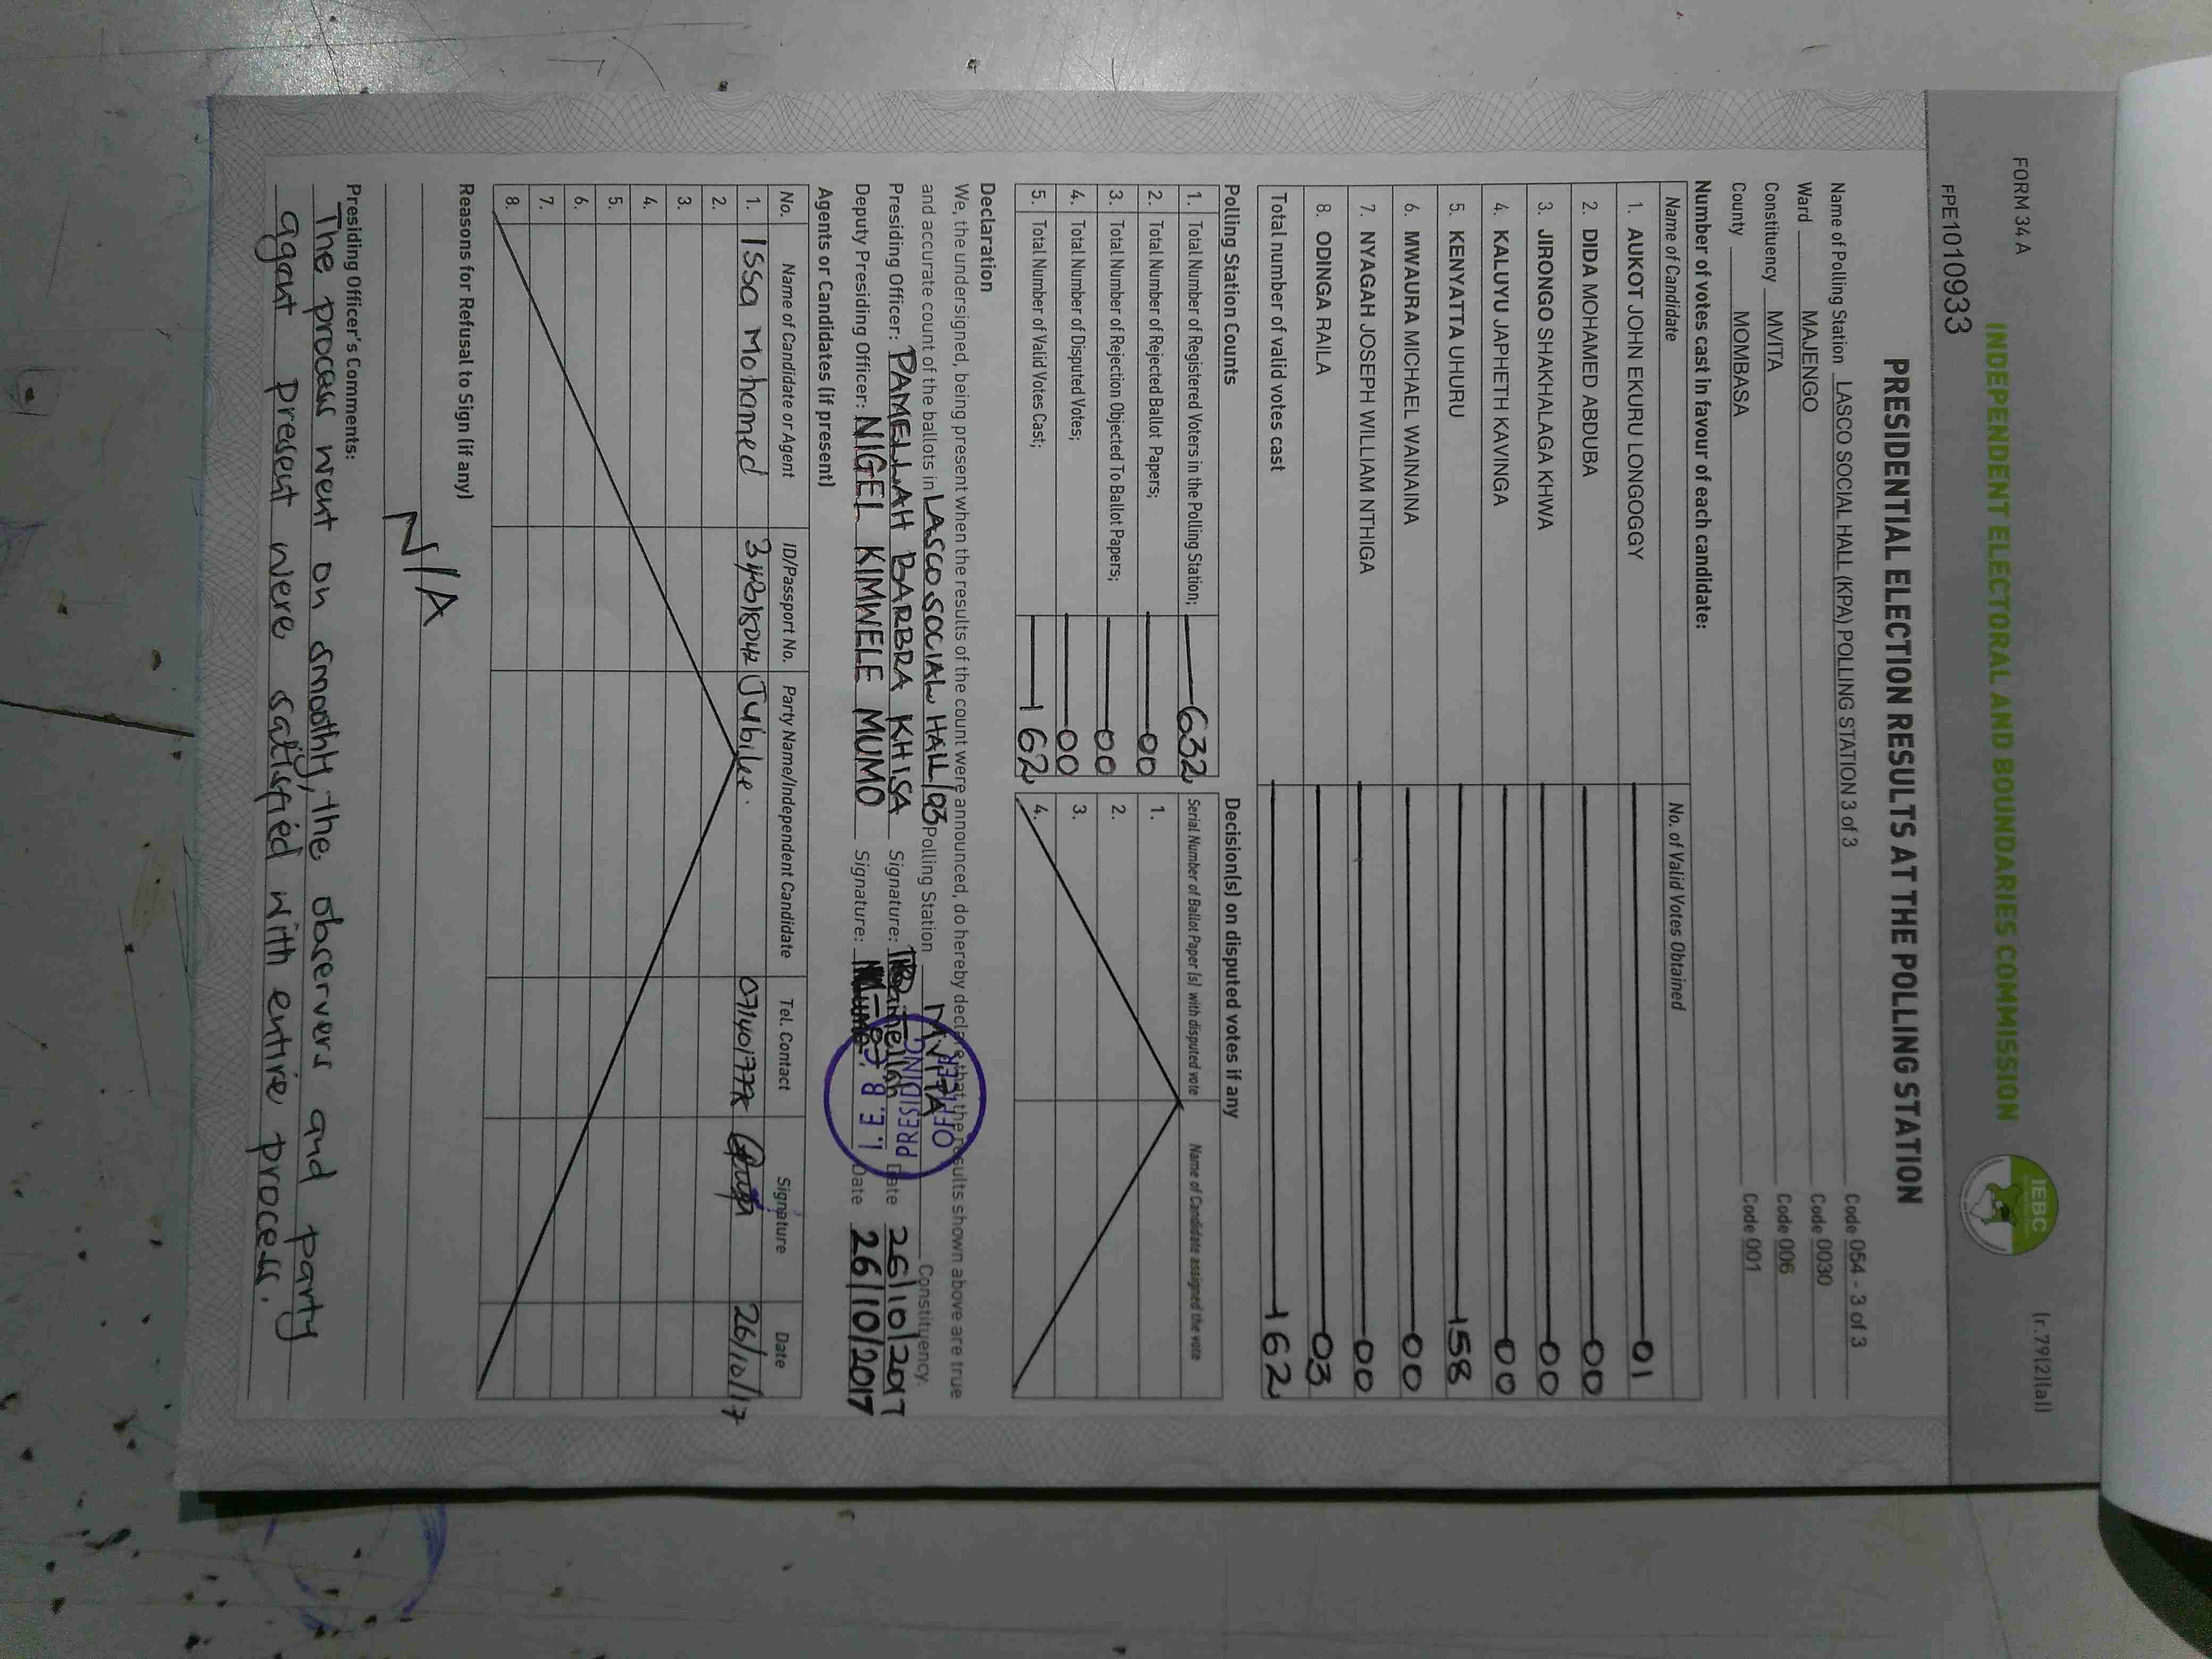 FORM 34 A
(r.79(2)(a))
INDEPENDENT ELECTORAL AND BOUNDARIES COMMISSION
IEBC
FPE1010933
PRESIDENTIAL ELECTION RESULTS AT THE POLLING STATION
Name of Polling Station LASCO SOCIAL HALL (KPA) POLLING STATION 3 of 3 Code 054 - 3 of 3
Ward MAJENGO Code 0030
Constituency MVITA Code 006
County MOMBASA Code 001
Number of votes cast in favour of each candidate:
Name of Candidate No. of Valid Votes Obtained
1. AUKOT JOHN EKURU LONGOGGY 01
2. DIDA MOHAMED ABDUBA 00
3. JIRONGO SHAKHALAGA KHWA 00
4. KALUYU JAPHETH KAVINGA 00
5. KENYATTA UHURU 158
6. MWAURA MICHAEL WAINAINA 00
7. NYAGAH JOSEPH WILLIAM NTHIGA 00
8. ODINGA RAILA 03
Total number of valid votes cast 162
Polling Station Counts Decision(s) on disputed votes if any
1. Total Number of Registered Voters in the Polling Station; 632 Serial Number of Ballot Paper (s) with disputed vote Name of Candidate assigned the vote
2. Total Number of Rejected Ballot Papers; 00 1.
3. Total Number of Rejection Objected To Ballot Papers; 00 2.
4. Total Number of Disputed Votes; 00 3.
5. Total Number of Valid Votes Cast; 162 4.
Declaration
We, the undersigned, being present when the results of the count were announced, do hereby declare that the results shown above are true
and accurate count of the ballots in LASCO SOCIAL HALL/03 Polling Station MVITA Constituency.
Presiding Officer: PAMELLAH BARBRA KHISA Signature: Pamellah Date 26/10/2017
Deputy Presiding Officer: NIGEL KIMWELE MUMO Signature: Date 26/10/2017
PRESIDING OFFICER
I.E.B.C
Agents or Candidates (if present)
No. Name of Candidate or Agent ID/Passport No. Party Name/Independent Candidate Tel. Contact Signature Date
1. Issa Mohamed Jubilee. 26/10/17
2.
3.
4.
5.
6.
7.
8.
Reasons for Refusal to Sign (if any)
N/A
Presiding Officer's Comments:
The process went on smoothly, the observers and party
agent present were satisfied with entire process.